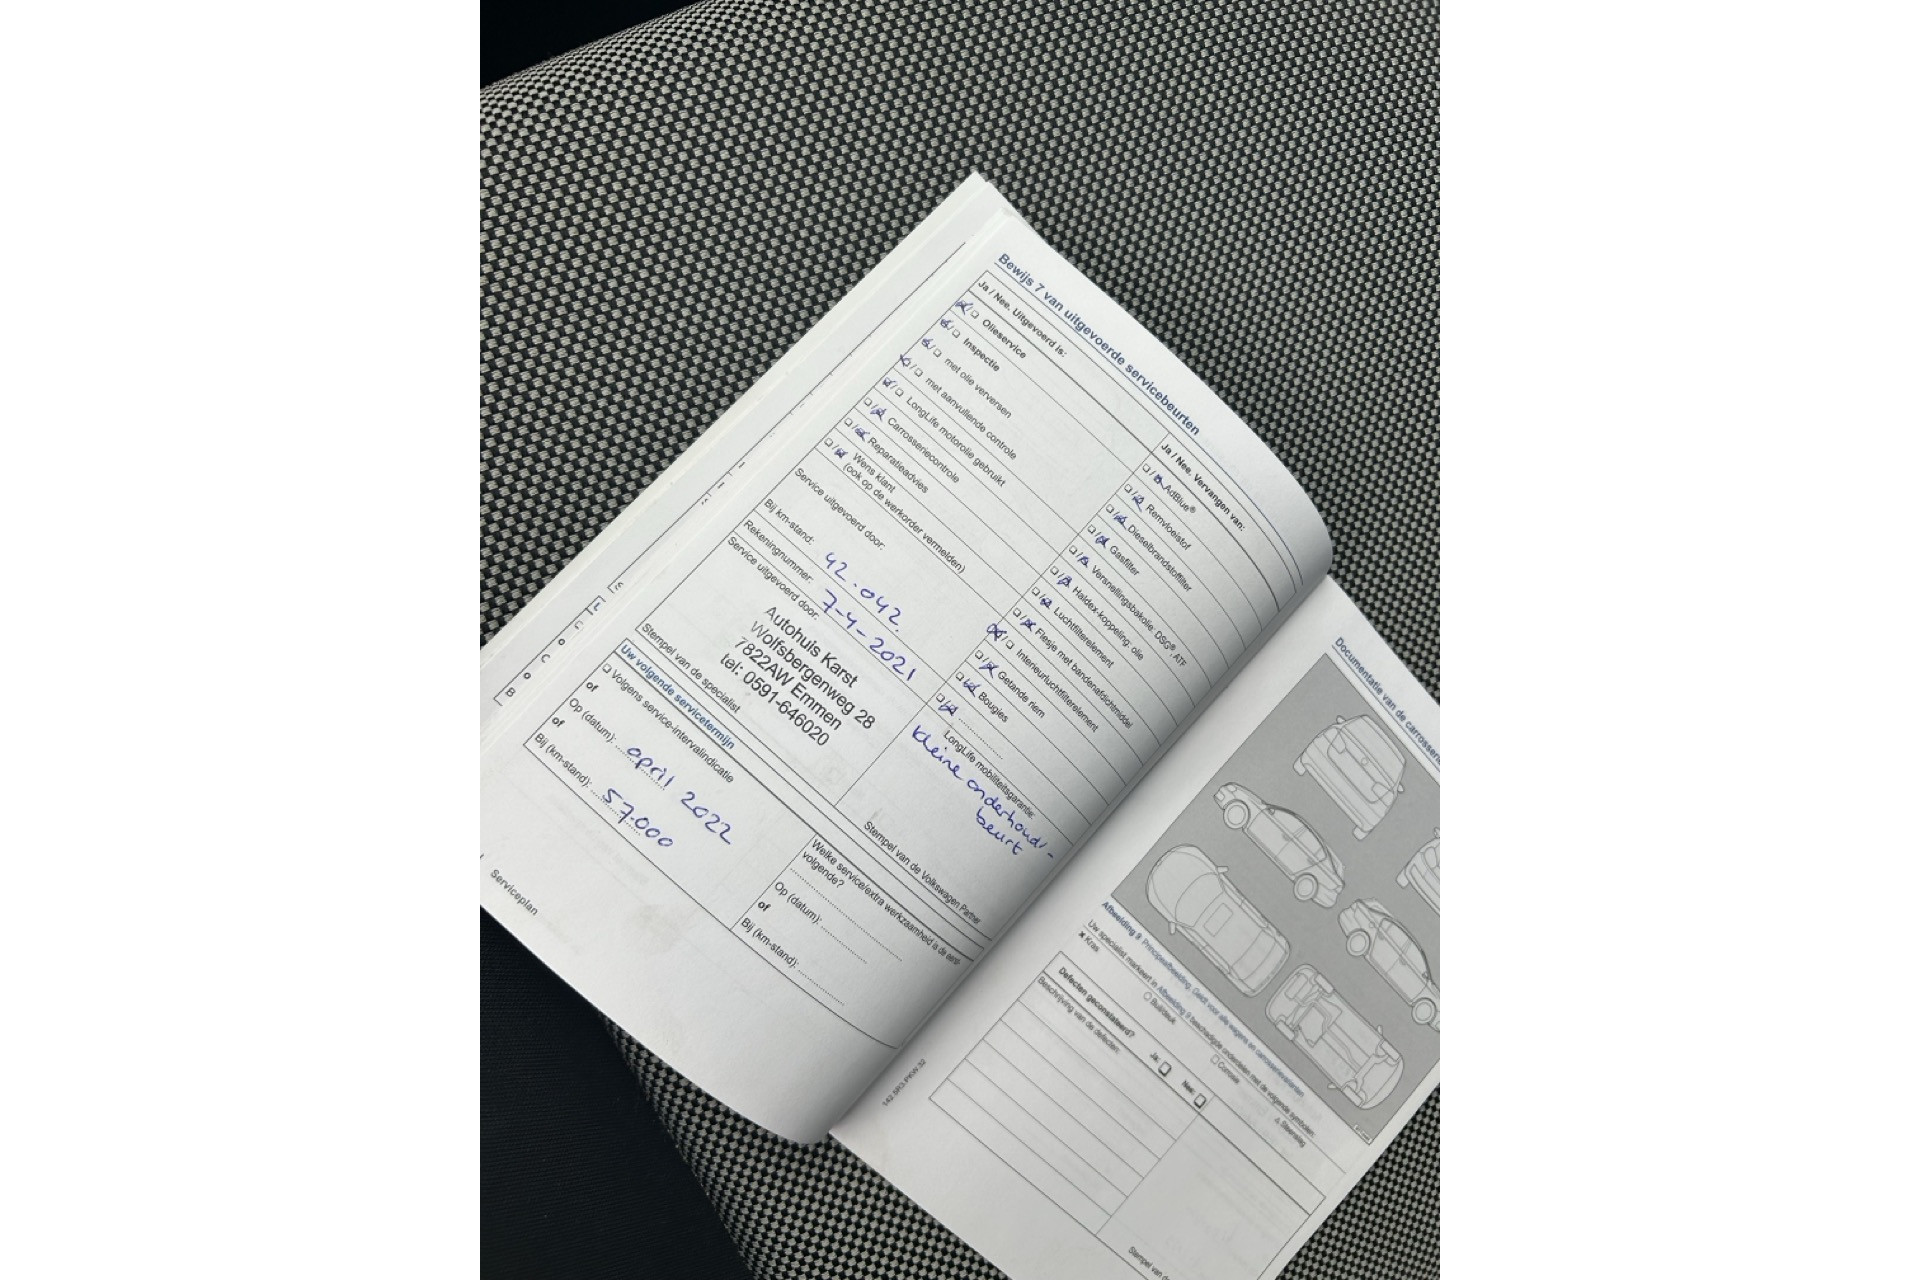 Bewijs 7 van uitgevoerde servicebeurten
Ja / Nee. Uitgevoerd is:
Olieservice
Inspectie
met olie verversen
met aanvullende controle
LongLife motorolie gebruikt
Carrosseriecontrole
Reparatieadvies
Wens klant
(ook op de werkorder vermelden)
Service uitgevoerd door:
Bij km-stand: 42.042.
Rekeningnummer: 7-4-2021
Service uitgevoerd door:
Autohuis Karst
Wolfsbergenweg 28
7822AW Emmen
tel: 0591-646020
Stempel van de specialist
Ja / Nee. Vervangen van:
AdBlue®
Remvloeistof
Dieselbrandstoffilter
Gasfilter
Versnellingsbakolie: DSG®, ATF
Haldex-koppeling: olie
Luchtfilterelement
Flesje met bandenafdichtmiddel
Interieurluchtfilterelement
Getande riem
Bougies
LongLife mobiliteitsgarantie:
kleine onderhouds-
beurt
Stempel van de Volkswagen Partner
Uw volgende servicetermijn
Volgens service-intervalindicatie
of
Op (datum): april 2022
of
Bij (km-stand): 57.000
Welke service/extra werkzaamheid is de eerst-
volgende?
Op (datum):
of
Bij (km-stand):
Serviceplan
Documentatie van de carrosserie
Afbeelding 9 Principeafbeelding. Geldt voor alle wagens en carrosserievarianten.
Uw specialist markeert in Afbeelding 9 beschadigde onderdelen met de volgende symbolen:
× Kras
Buil/deuk
Corrosie
Steenslag
Defecten geconstateerd?
Ja:
Nee:
Beschrijving van de defecten:
Stempel van de